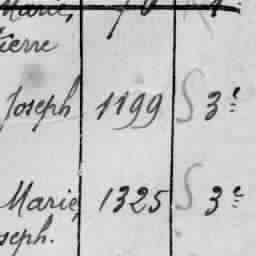 Marie,
ierre
Joseph 1199 S 3e
Marie, 1325 S 3e
seph.